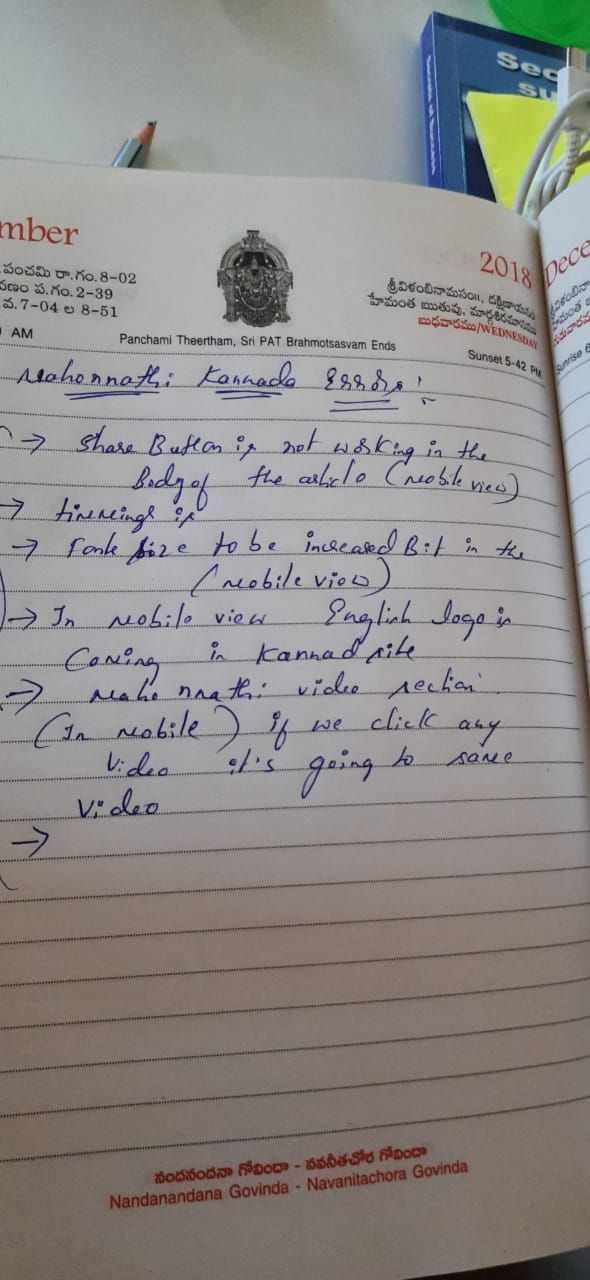 mber
పంచమి రా.గం.8-02
వణం ప.గం.2-39
వ.7-04 ల 8-51
AM
2018
శ్రీవిళంబినామసం॥, దక్షిణాయనం
హేమంత ఋతువు, మార్గశిరమాసము
బుధవారము/WEDNESDAY
Panchami Theertham, Sri PAT Brahmotsasvam Ends
Sunset 5-42 PM
Dece
Sunrise 6
Sec
su
Mahonnathi Kannada
→ Share Button is not working in the
Body of the article (mobile view)
→ is
→ Font size to be increased Bit in the
(mobile view)
→ In mobile view English logo is
Coming in Kannad site
→ maho nnathi video section
(In mobile) if we click any
Video it's going to same
Video
→
నందనందనా గోవిందా - నవనీతచోర గోవిందా
Nandanandana Govinda - Navanitachora Govinda